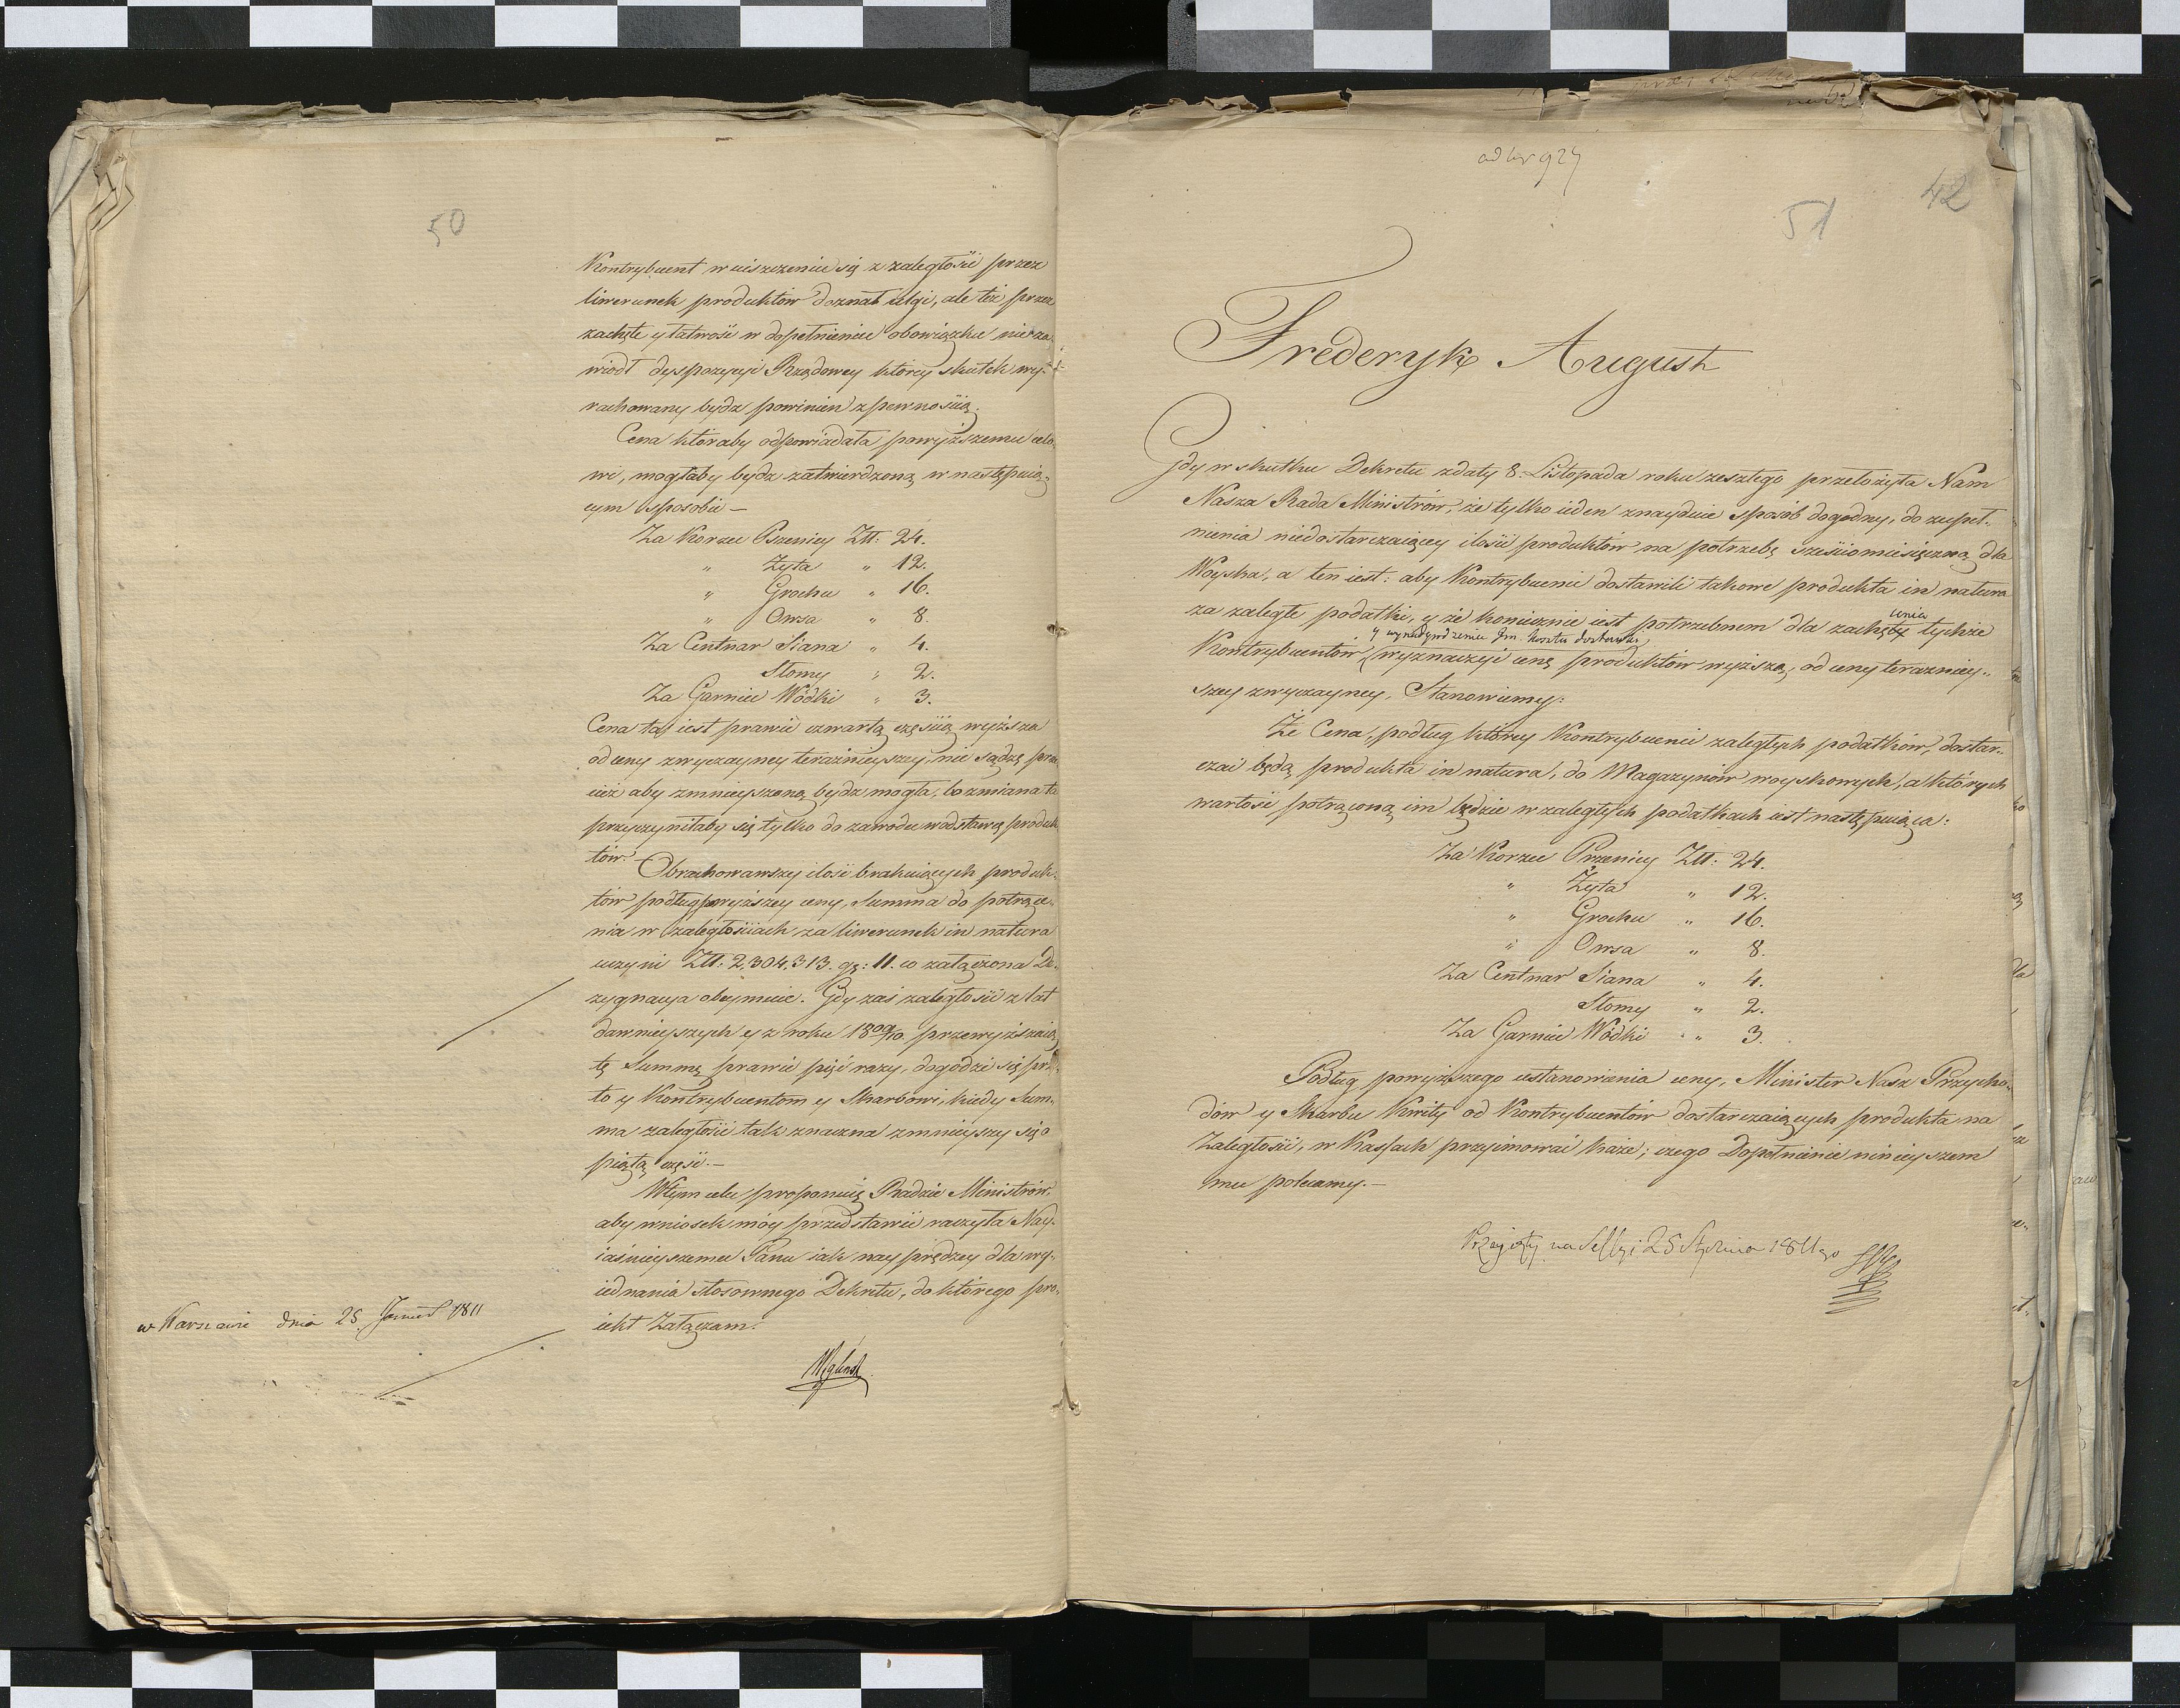 50
Kontrybuent w uiszczeniu się z zaległości przez
liwerunek produktów doznał ulgi, ale też przez
zachętę y łatwość w dopełnieniu obowiązku nie za,,
wiodł dyspozycyi Rządowey którey skutek wy,,
rachowany bydz powinien z pewnością.
Cena któraby odpowiadała powyższemu celo,,
wi, mogłaby bydz zatwierdzoną w następuią,,
cym sposobie —
Za Korzec Pszenicy Złł: 24.
" Żyta " 12.
" Grochu " 16.
" Owsa " 8.
Za Centnar Siana " 4.
Słomy " 2.
Za Garniec Wódki " 3.
Cena ta iest prawie czwartą częścią wyższa
od ceny zwyczayney teraznieyszey, nie sądzę prze
cież aby zmnieyszoną bydz mogła, bo zmiana ta
przyczyniłaby się tylko do zawodu w dostawie produk
tów.
Obrachowawszy ilość brakuiących produk,,
tów podług powyższey ceny, Summa do potrące,,
nia w zaległościach za liwerunek in natura
uczyni Złł: 2,304,313. gr: 11. co załączona De,,
zygnacya obeymuie. Gdy zaś zaległości z lat
dawnieyszych y z roku 1809/10 przewyższaią
tę Summę prawie pięć razy, dogodzi się prze
to y Kontrybuentom y Skarbowi, kiedy Sum,,
ma zaległości tak znaczna zmnieyszy się o
piątą część.—
W tym celu proponuię Radzie Ministrów
aby wniosek móy przedstawić raczyła Nay,,
iaśnieyszemu Panu iak nayprędzey dla wy,,
iednania stosownego Dekretu, do którego pro,,
iekt załączam.
w Warszawie dnia 25. Januar 1811
Węgleński
ad Nr 927
51
42
Frederyk August
Gdy w skutku Dekretu z daty 8. Listopada roku zeszłego przełożyła Nam
Nasza Rada Ministrów, że tylko ieden znayduie sposób dogodny, do zupeł,,
nienia niedostarczaiącey ilości produktów na potrzebę sześciomiesięczną dla
Woyska, a ten iest: aby Kontrybuenci dostawili takowe produkta in natura
za zaległe podatki, y że koniecznie iest potrzebnem dla zachęty cenia tychże
y wynadgrodzenia im kosztu dostawki
Kontrybuentów wyznaczyć cenę produktów wyższą, od ceny terazniey,,
szey zwyczayney, Stanowiemy:
Że Cena, podług którey Kontrybuenci zaległych podatków, dostar,,
czać będą produkta in natura, do Magazynów woyskowych, a których
wartość potrąconą im będzie w zaległych podatkach iest następuiąca:
Za Korzec Pszenicy Złł: 24.
" Żyta " 12.
" Grochu " 16.
" Owsa " 8.
Za Centnar Siana " 4.
Słomy " 2.
Za Garniec Wódki " 3.
Podług powyższego ustanowienia ceny, Minister Nasz Przycho,,
dów y Skarbu Kwity od Kontrybuentów dostarczaiących produkta na
Zaległości, w Kassach przyimować każe; czego Dopełnienie ninieyszem
mu polecamy.—
Przyięty na Sessyi 25 Stycznia 1811go